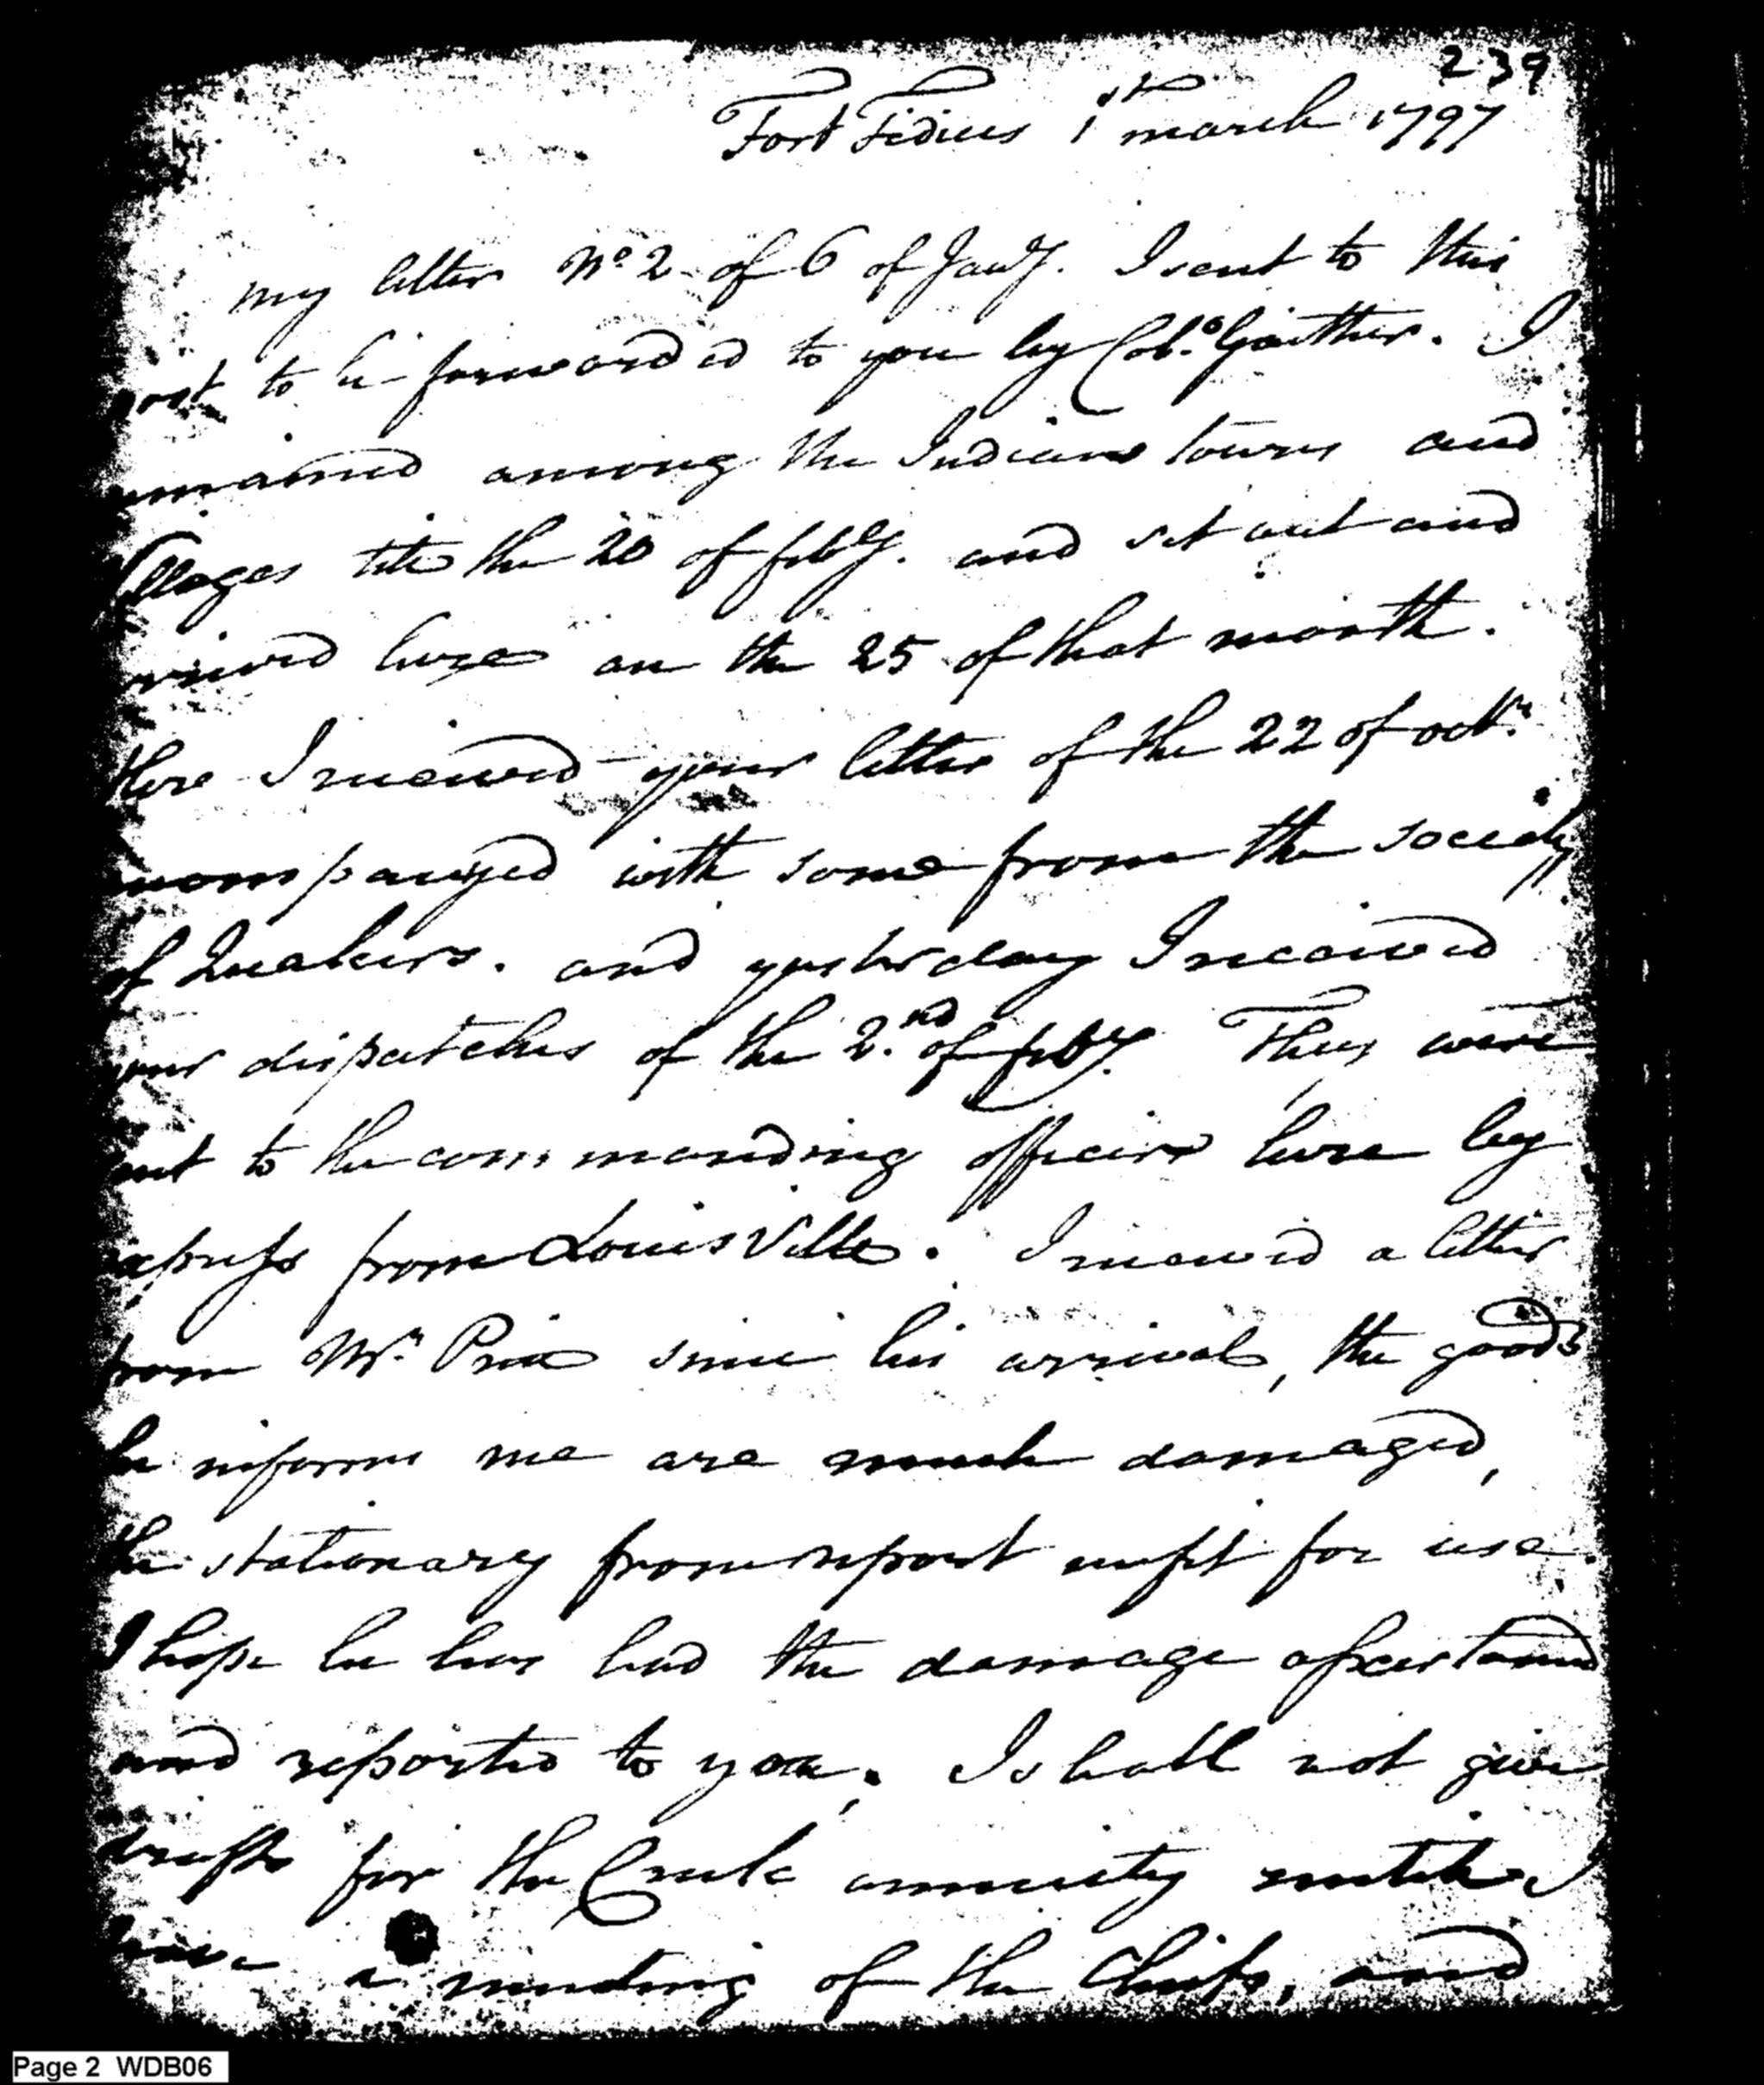 239
Fort Fidius 1st march 1797
my letter No 2 of 6 of Jany. I sent to this
post to be forwarded to you by Colo. Gaither. I
remained among the Indians towns and
villages till the 20 of feby. and set out and
arrived here on the 25 of that month.
Here I received your letter of the 22 of octr.
accompanyed with some from the society
of Quakers. and yesterday I received
your dispatches of the 2nd. of feby. They were
sent to the commanding officer here by
express from Louisville. I received a letter
from Mr. Price since his arrival, the goods
he informs me are much damaged,
the stationary from report unfit for use.
I hope he has had the damage assertained
and reported to you. I shall not give
drafts for the Creek annuity until I
have a meeting of the Chiefs, and
Page 2 WDB06